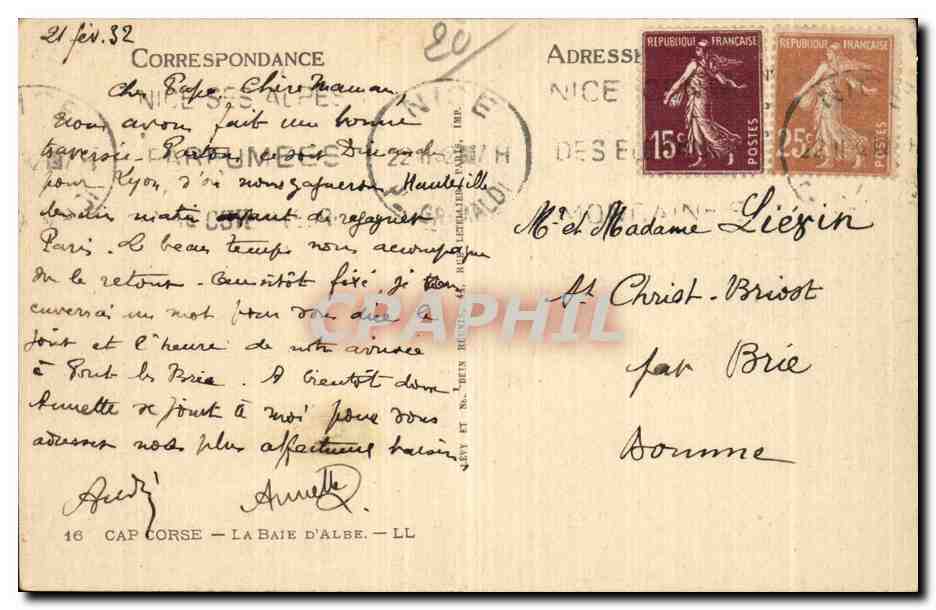 21 fév. 32
CORRESPONDANCE
Cher Papa, Chère Maman,
Nous avons fait une bonne
traversée. Partons ce soir Dimanche
pour Lyon, d'où nous gagnerons Hauteville
lundi matin avant de regagner
Paris. Le beau temps nous accompagne
du le retour. Aussitôt fixé, je vous
enverrai un mot pour vous dire le
jour et l'heure de notre arrivée
à Pont les Brie. A bientôt donc
Annette se joint à moi pour vous
adresser nos plus affectueux baisers
André Annette
16 CAP CORSE — LA BAIE D'ALBE. — LL
LÉVY ET NEURDEIN RÉUNIS, 44, RUE LETELLIER, PARIS, IMP.
20
ADRESSE
REPUBLIQUE FRANÇAISE
15c
POSTES
REPUBLIQUE FRANÇAISE
25c
POSTES
NICE SES ALPES
PARFUMÉES
NICE
GRIMALDI
22 II
NICE
Mr et Madame Liézin
St Christ-Briost
par Brie
Somme
CPAPHIL